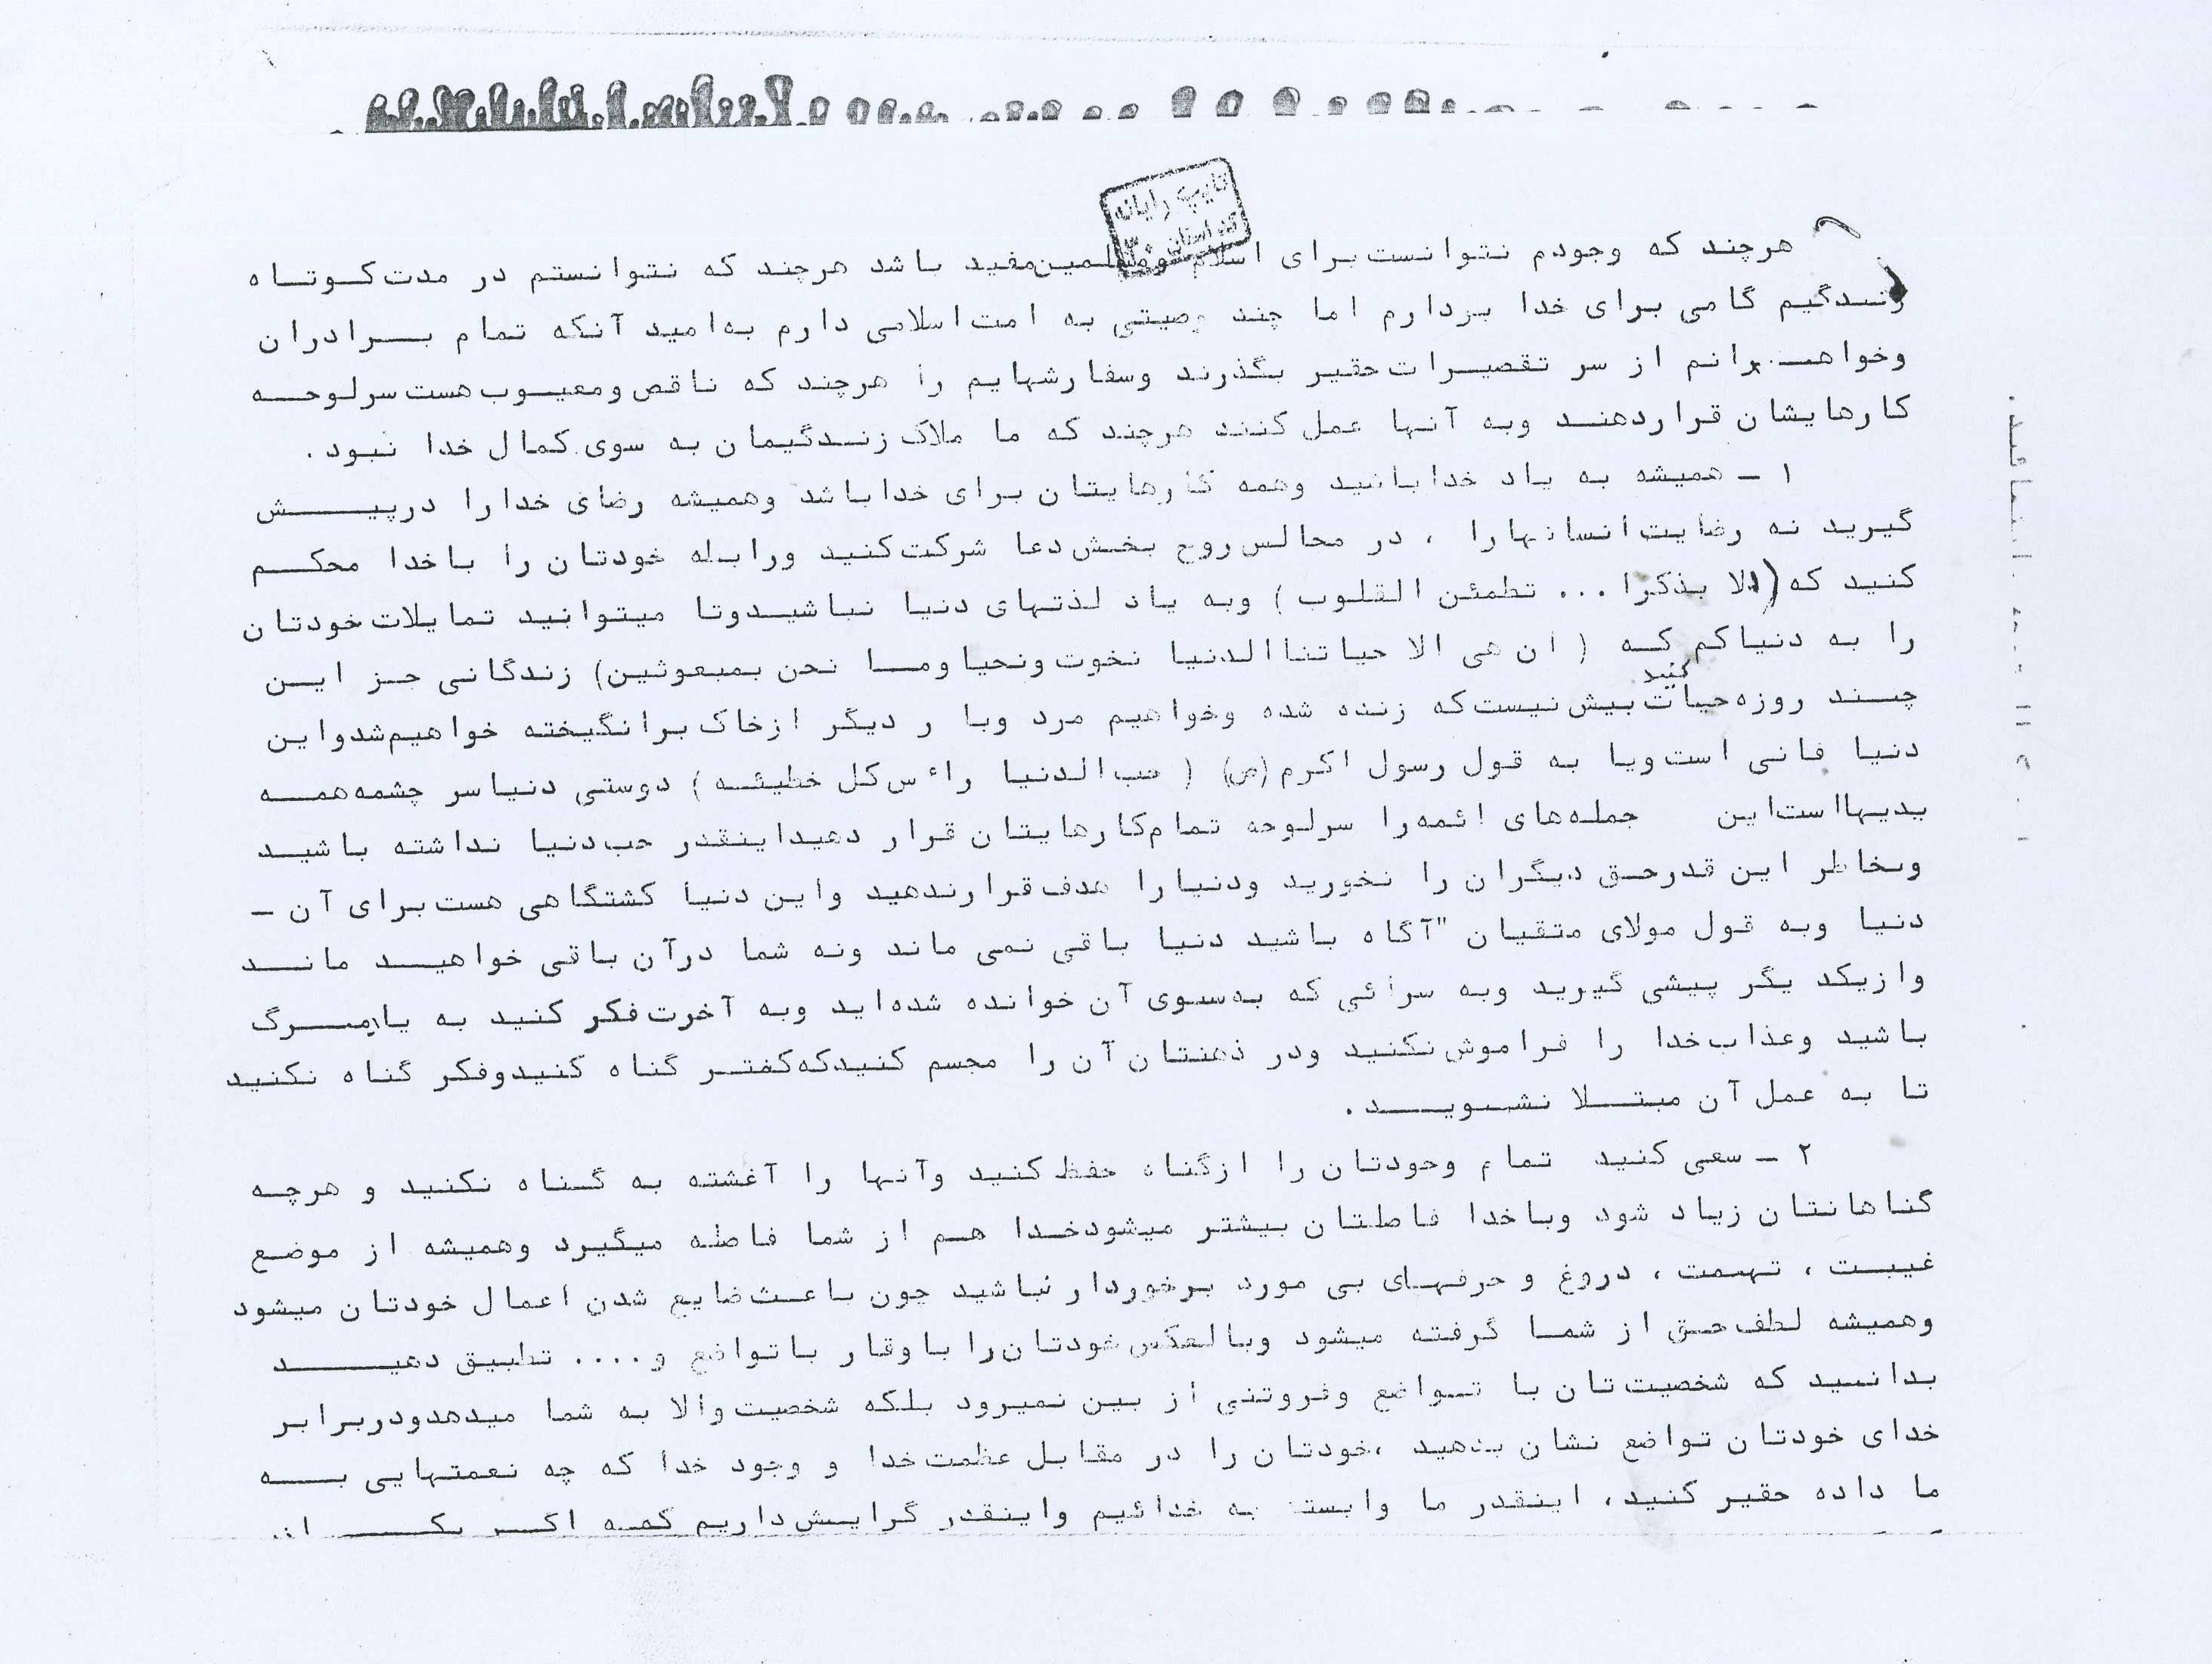 تایپ رایانه
هرچند که وجودم نتوانست برای اسلام ومسلمین مفید باشد هرچند که نتوانستم در مدت کوتاه
زندگیم گامی برای خدا بردارم اما چند وصیتی به امت اسلامی دارم به امید آنکه تمام برادران
وخواهرانم از سر تقصیرات حقیر بگذرند وسفارشهایم را هرچند که ناقص ومعیوب هست سرلوحه
کارهایشان قراردهند وبه آنها عمل کنند هرچند که ما ملاک زندگیمان به سوی کمال خدا نبود.
۱ – همیشه به یاد خدا باشید وهمه کارهایتان برای خدا باشد وهمیشه رضای خدا را درپیش
گیرید نه رضایت انسانها را ، در مجالس روح بخش دعا شرکت کنید ورابطه خودتان را باخدا محکم
کنید که (الا بذکرا ... تطمئن القلوب) وبه یاد لذتهای دنیا نباشیدوتا میتوانید تمایلات خودتان
را به دنیا کم کنید که ( ان هی الا حیاتنا الدنیا نخوت ونحیا وما نحن بمبعوثین) زندگانی جز این
چند روزه حیات بیش نیست که زنده شده وخواهیم مرد وبا ر دیگر ازخاک برانگیخته خواهیم شدواین
دنیا فانی است ویا به قول رسول اکرم (ص) ( حب الدنیا راء س کل خطیئه ) دوستی دنیا سر چشمه همه
بدیها است این جمله های ائمه را سرلوحه تمام کارهایتان قرار دهیداینقدر حب دنیا نداشته باشید
وبخاطر این قدرحق دیگران را نخورید ودنیا را هدف قرارندهید واین دنیا کشتگاهی هست برای آن –
دنیا وبه قول مولای متقیان "آگاه باشید دنیا باقی نمی ماند ونه شما درآن باقی خواهید ماند
وازیکد یگر پیشی گیرید وبه سرائی که به سوی آن خوانده شده اید وبه آخرت فکر کنید به یاد مرگ
باشید وعذاب خدا را فراموش نکنید ودر ذهنتان آن را مجسم کنیدکه کمتر گناه کنیدوفکر گناه نکنید
تا به عمل آن مبتلا نشوید.
۲ – سعی کنید تمام وجودتان را ازگناه حفظ کنید وآنها را آغشته به گناه نکنید و هرچه
گناهانتان زیاد شود وباخدا فاصلتان بیشتر میشودخدا هم از شما فاصله میگیرد وهمیشه از موضع
غیبت ، تهمت ، دروغ و حرفهای بی مورد برخوردار نباشید چون باعث ضایع شدن اعمال خودتان میشود
وهمیشه لطف حق از شما گرفته میشود وبالعکس خودتان را باوقار باتواضع و.... تطبیق دهید
بدانید که شخصیت تان با تواضع وفروتنی از بین نمیرود بلکه شخصیت والا به شما میدهدودربرابر
خدای خودتان تواضع نشان بدهید ،خودتان را در مقابل عظمت خدا و وجود خدا که چه نعمتهایی به
ما داده حقیر کنید، اینقدر ما وابسته به خدائیم واینقدر گرایش داریم که اگر یک